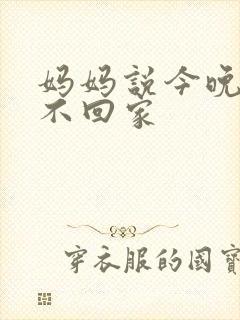 妈妈説今晚
不回家
穿衣服的國寶